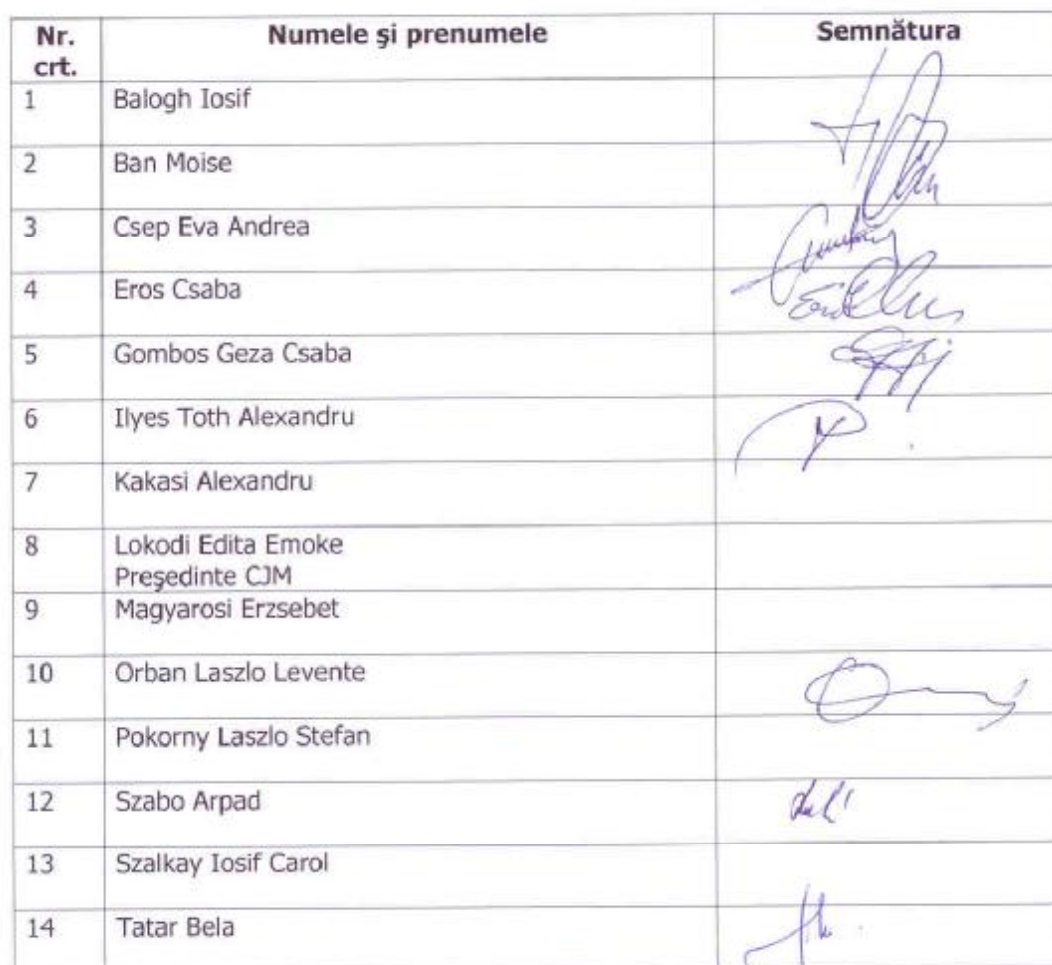 Nr. crt. Numele şi prenumele Semnătura
1 Balogh Iosif
2 Ban Moise
3 Csep Eva Andrea
4 Eros Csaba
5 Gombos Geza Csaba
6 Ilyes Toth Alexandru
7 Kakasi Alexandru
8 Lokodi Edita Emoke
Preşedinte CJM
9 Magyarosi Erzsebet
10 Orban Laszlo Levente
11 Pokorny Laszlo Stefan
12 Szabo Arpad
13 Szalkay Iosif Carol
14 Tatar Bela